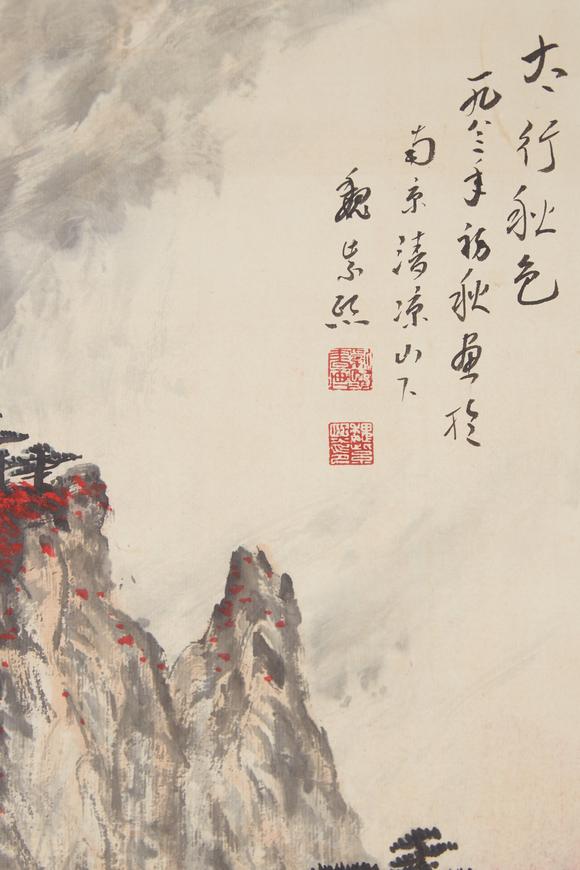 太行秋色
一九八二年初秋画於
南京清凉山下
魏紫熙
魏紫熙印